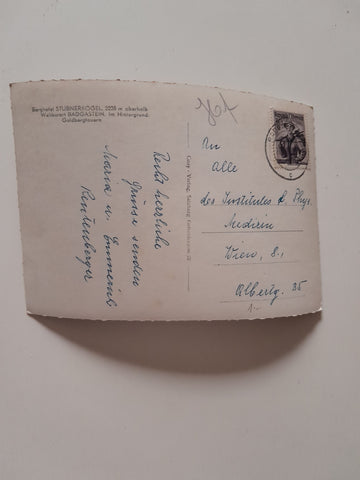 Berghotel STUBNERKOGEL, 2238 m oberhalb
Weltkurort BADGASTEIN. Im Hintergrund:
Goldbergtauern
Recht herzliche
Grüsse senden
Maria u. Emmerich
Rentenberger
Cosy-Verlag, Salzburg, Getreidegasse 22
An
Alle
des Institutes f. Phys.
Medizin
Wien, 8.,
Alserstg. 35